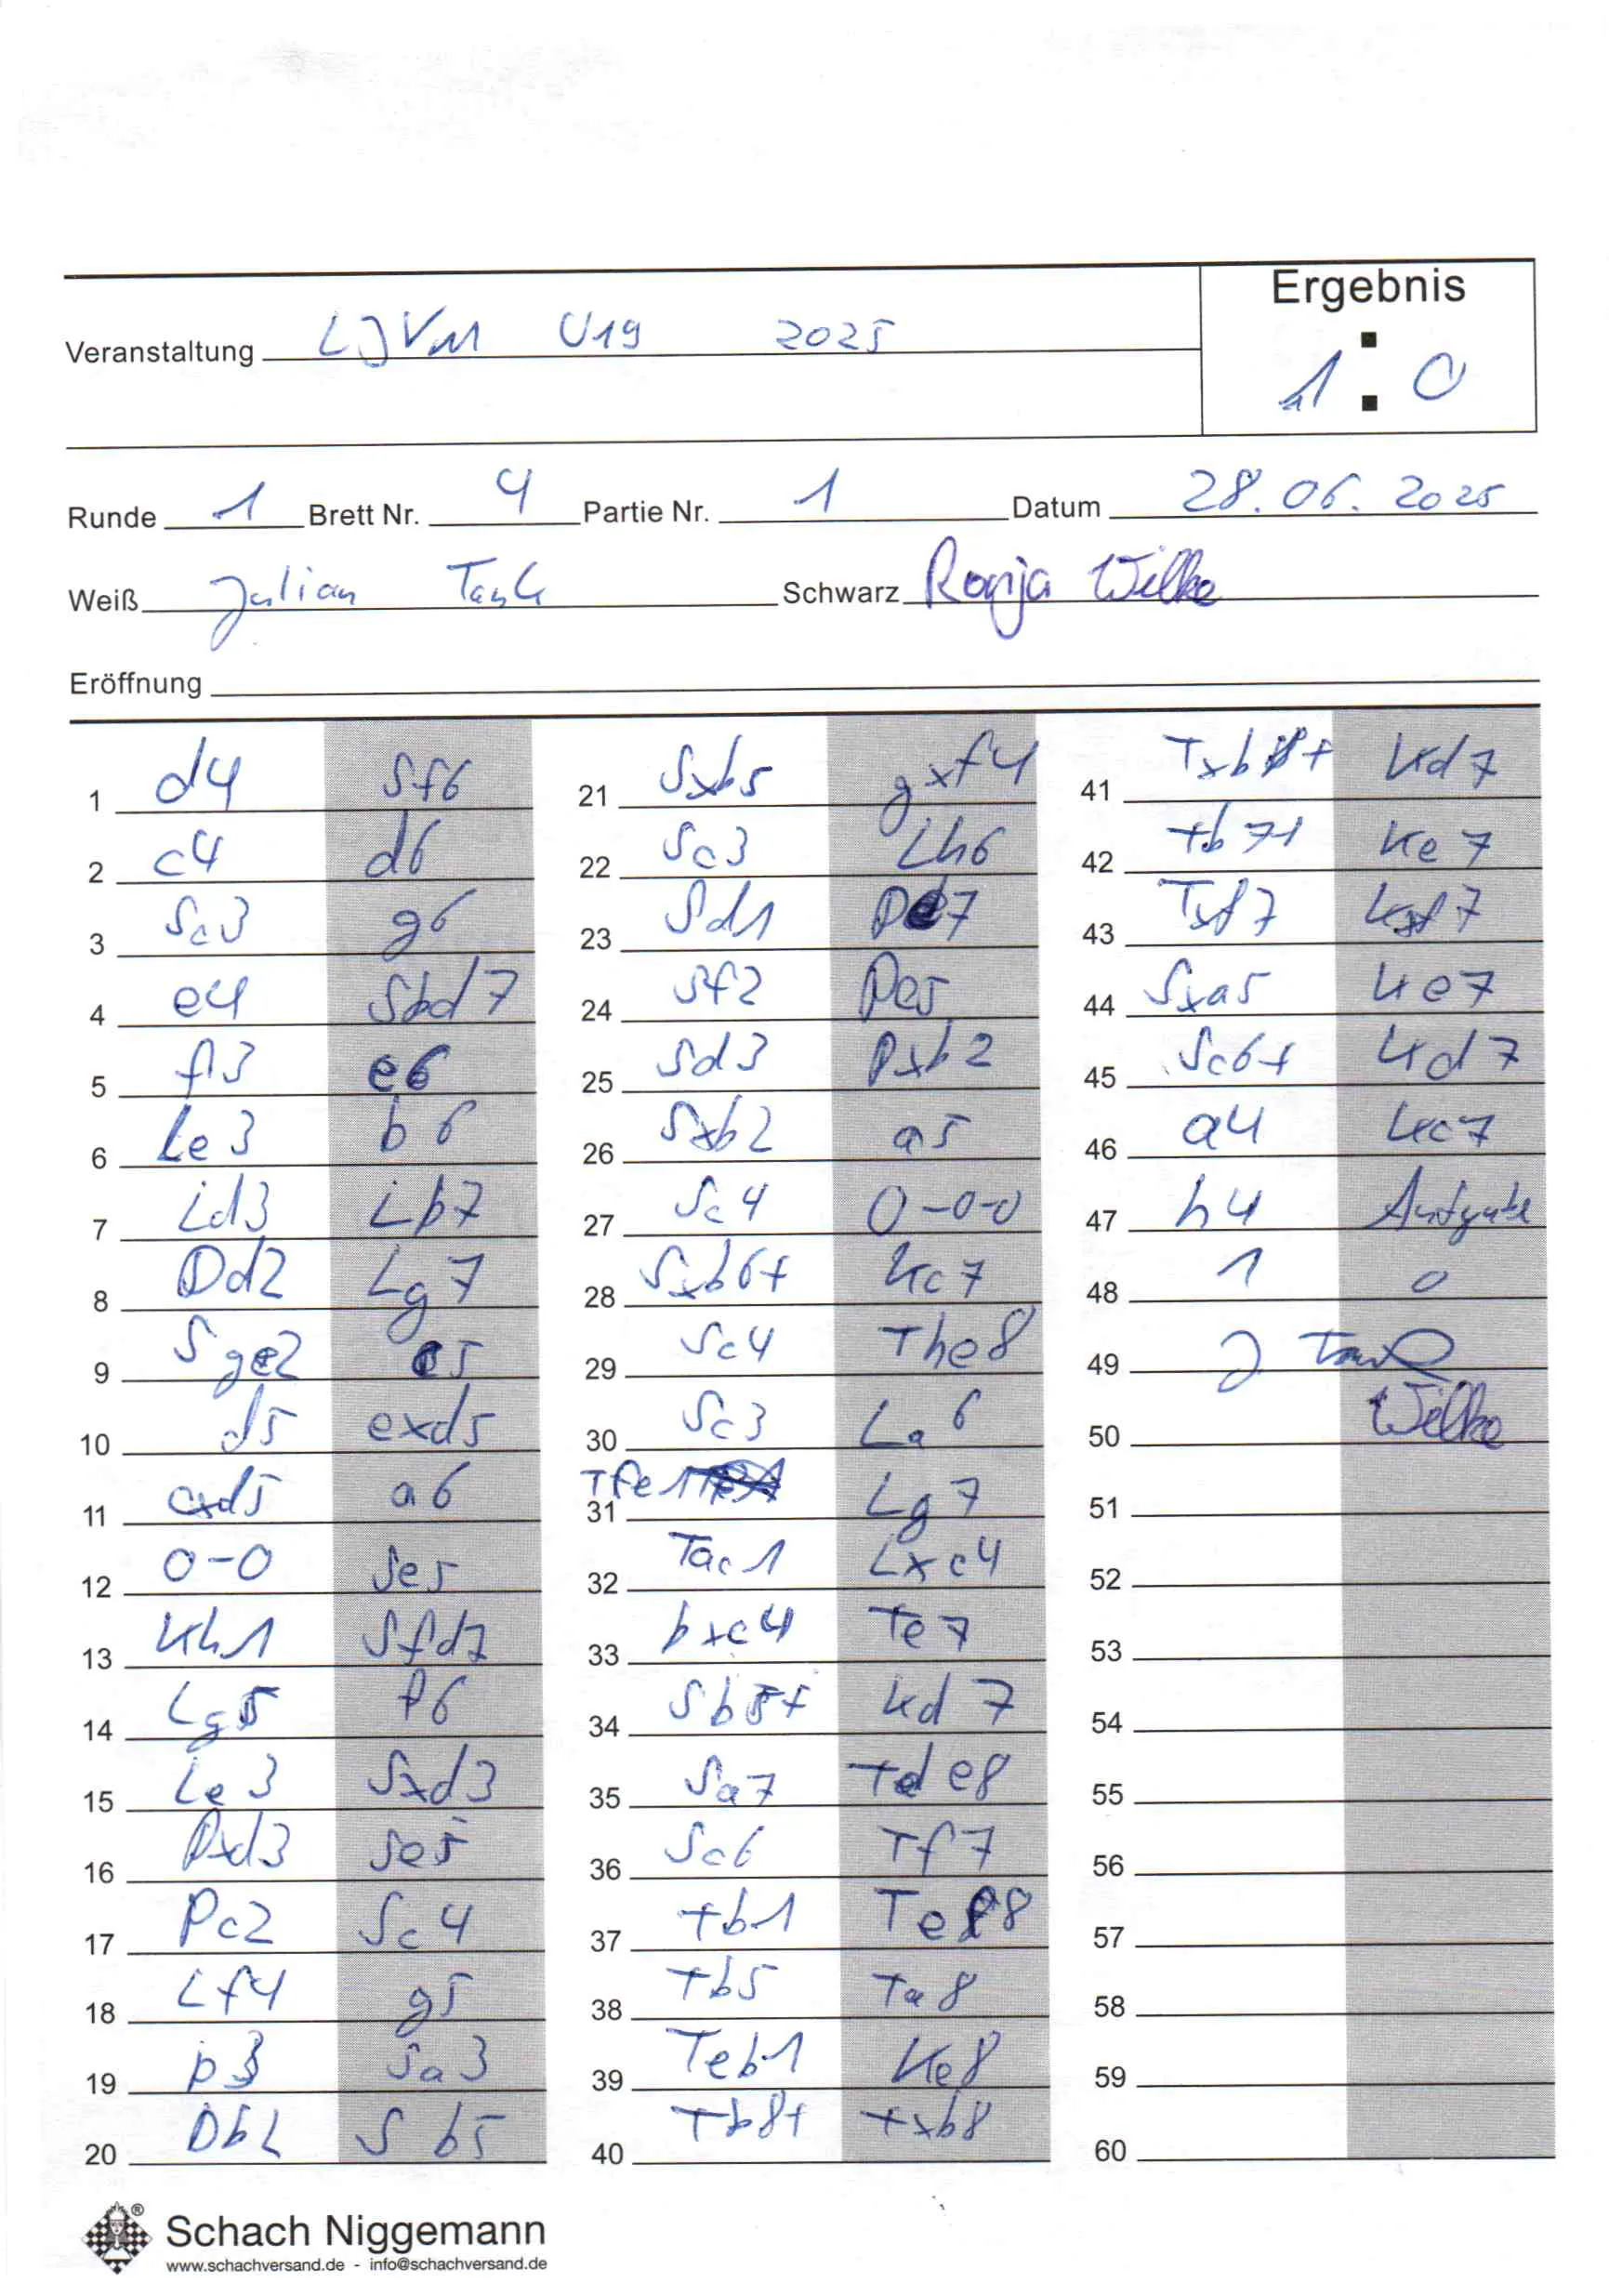 Ergebnis
Veranstaltung LJVM U19 2025
1 : 0
Runde 1 Brett Nr. 4 Partie Nr. 1 Datum 28.06.2025
Weiß Julian Tank Schwarz Ronja Wilke
Eröffnung
1 d4 Sf6
2 c4 d6
3 Sc3 g6
4 e4 Sbd7
5 f3 e6
6 Le3 b6
7 Ld3 Lb7
8 Dd2 Lg7
9 Sge2 c5
10 d5 exd5
11 cxd5 a6
12 0-0 Se5
13 Kh1 Sfd7
14 Lg5 f6
15 Le3 Sxd3
16 Dxd3 Se5
17 Dc2 Sc4
18 Lf4 g5
19 b3 Sa3
20 Db2 Sb5
21 Sxb5 gxf4
22 Sc3 Lh6
23 Sd1 De7
24 Sf2 De5
25 Sd3 Dxb2
26 Sxb2 a5
27 Sc4 0-0-0
28 Sxb6+ Kc7
29 Sc4 The8
30 Sc3 La6
31 Tfe1 Lg7
32 Tac1 Lxc4
33 bxc4 Te7
34 Sb5+ Kd7
35 Sa7 Tde8
36 Sc6 Tf7
37 Tb1 Tef8
38 Tb5 Ta8
39 Teb1 Ke8
40 Tb8+ Txb8
41 Txb8+ Kd7
42 Tb7+ Ke7
43 Txf7 Kxf7
44 Sxa5 Ke7
45 Sc6+ Kd7
46 a4 Kc7
47 h4 Aufgabe
48 1 0
49 J Tank
50 Wilke
51
52
53
54
55
56
57
58
59
60
Schach Niggemann
www.schachversand.de - info@schachversand.de